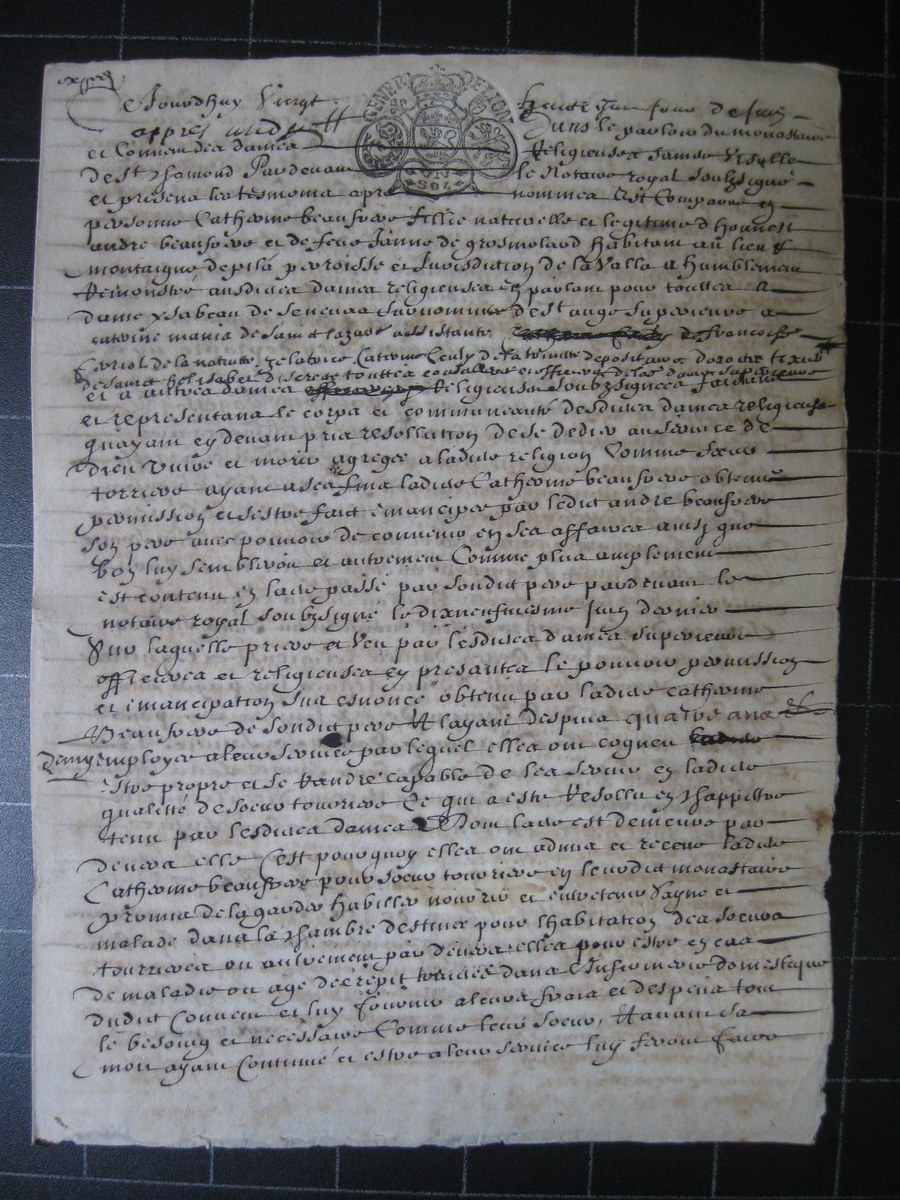 Jourdhuy Vingt huictie jour de juin
appres midy Dans le parloir du monastaire
et Couvent des dames Religieuses Sainte Ursulle
de St Chamond Pardevant le Notaire royal soubzsigné
et presens les tesmoins apres nommes Est Comparue en
personne Catherine beaufrere fillie naturelle et legitime d'honnest
andre beaufrere et de feue Janne de grosmoland habitant au lieu
montaigne de pila perroisse et Jurisdiction de la Valla a humblement
Remonstré ausdites dames religieuses en parlant pour touttes a
dame ysabeau de seneuas surnommee de St ange superieure
caterine maria de sainct lazare assistante de francoise
de la nativitte zelatrice Caterine de la trinitte depositaire dorotee
de sainct helisabet discrete touttes consalieres et officieres de lad dame superieure
et a autres dames Religieuses soubzsignees faisant
et representans le corps et communeauté desdites dames religieuses
quayant cy devant pris resollution de se dedier au service de
Dieu vivre et morir agregee a ladite religion Comme seur
torriere ayant a ces fins ladite Catherine beaufrere obtenu
permission et sestre fait emanciper par ledit andre beaufrere
son pere avec pouvoir de convenir en ses affaires ainsy que
bon luy sembleroit et autrement Comme plus amplement
est contenu en lacte passé par sondit pere pardevant le
notaire royal soubzsigné le dixneufviesme juin dernier
Sur laquelle priere et Veu par lesdites dames superieure
officieres et religieuses cy presantes le pouvoir permission
et emancipation sus enoncé obtenu par ladite catherine
Beaufrere de sondit pere et layant despuis quatre ans
employee a leur service par lequel elles ont cogneu
estre propre et se Randre capable de les servir en ladite
qualitté de soeur touriere Ce qui a esté Resollu en chappittre
tenu par lesdites dames Dont lacte est demeuré par
devers elle Cest pourquoy elles ont admis et receue ladite
Catherine beaufrere pour soeur touriere en leurdit monastaire
promis de la garder habillier nourrir et entretenir sayne et
malade dans la chambre destinee pour lhabitation des soeurs
tourrieres ou autrement par devers elles pour estre en cas
de maladie ou age decrepit dans linfirmerie domestique
dudit Couvent et luy fournir a leurs frais et despens tout
le besoing et necessaire Comme leur soeur, et avant sa
mort ayant Continué et estre a leur service luy feront faire